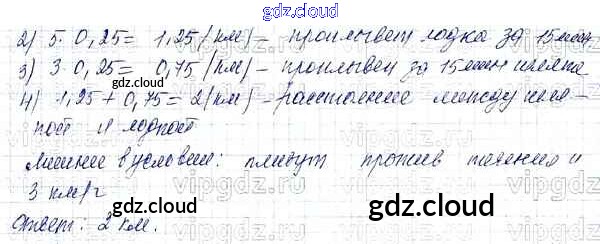 gdz.cloud
2) 5·0,25= 1,25 (км) – проплывет лодка за 15 мин
3) 3·0,25= 0,75 (км) – проплывен за 15 мин шляпа
4) 1,25+0,75= 2 (км) – расстояние между шля-
пой и лодкой
Лишнее в условии: плывут против течения и
3 км/г
Ответ: 2 км.
gdz.cloud
gdz.cloud
gdz.cloud
gdz.cloud
vipgdz.ru
vipgdz.ru
vipgdz.ru
vipgdz.ru